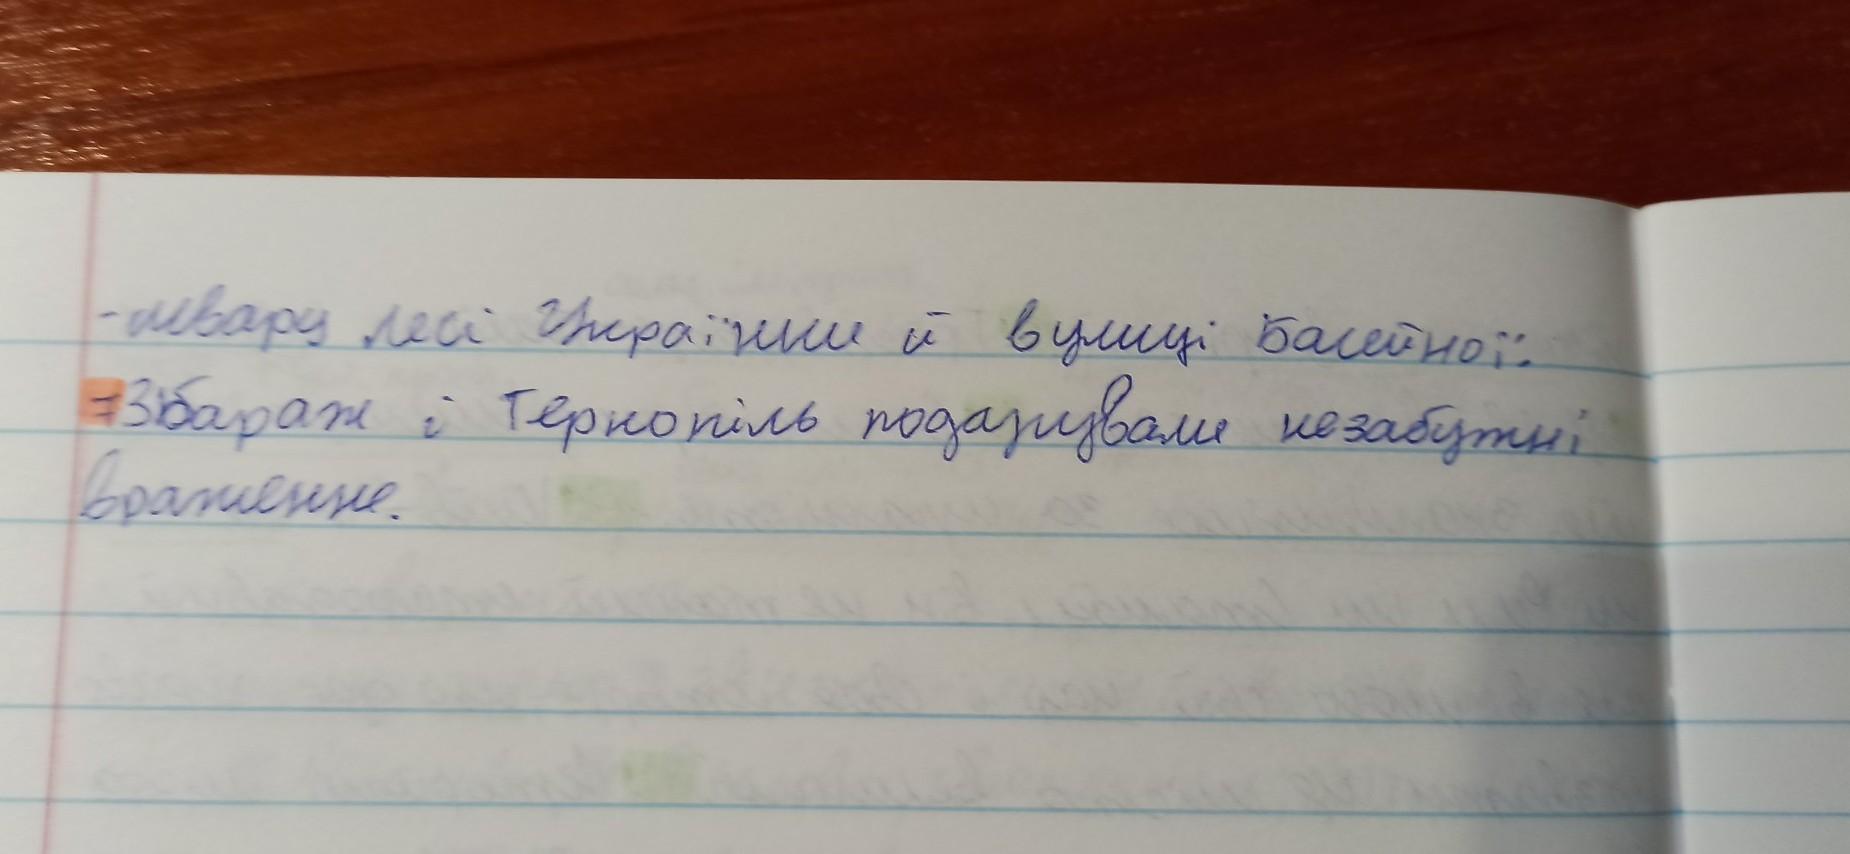 -левару Лесі Українки й вулиці Басейної.
- Збараж і Тернопіль подарували незабутні
враження.